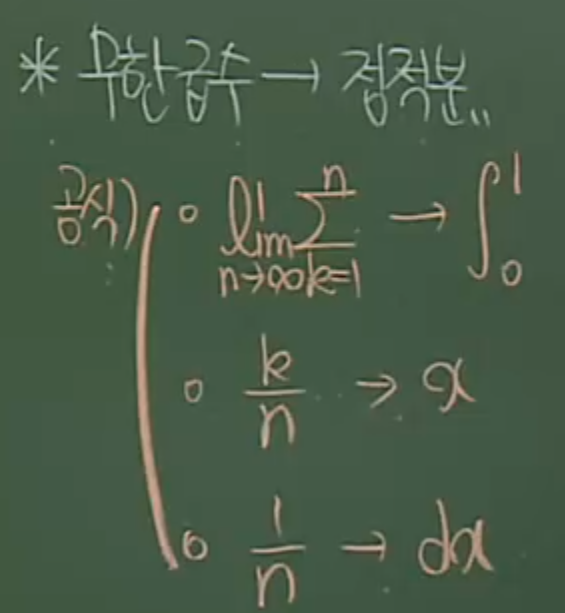 * 무한급수 → 정적분..
공식) ∘ lim n→∞ ∑ k=1 n → ∫ 0 1
∘ k/n → x
∘ 1/n → dx